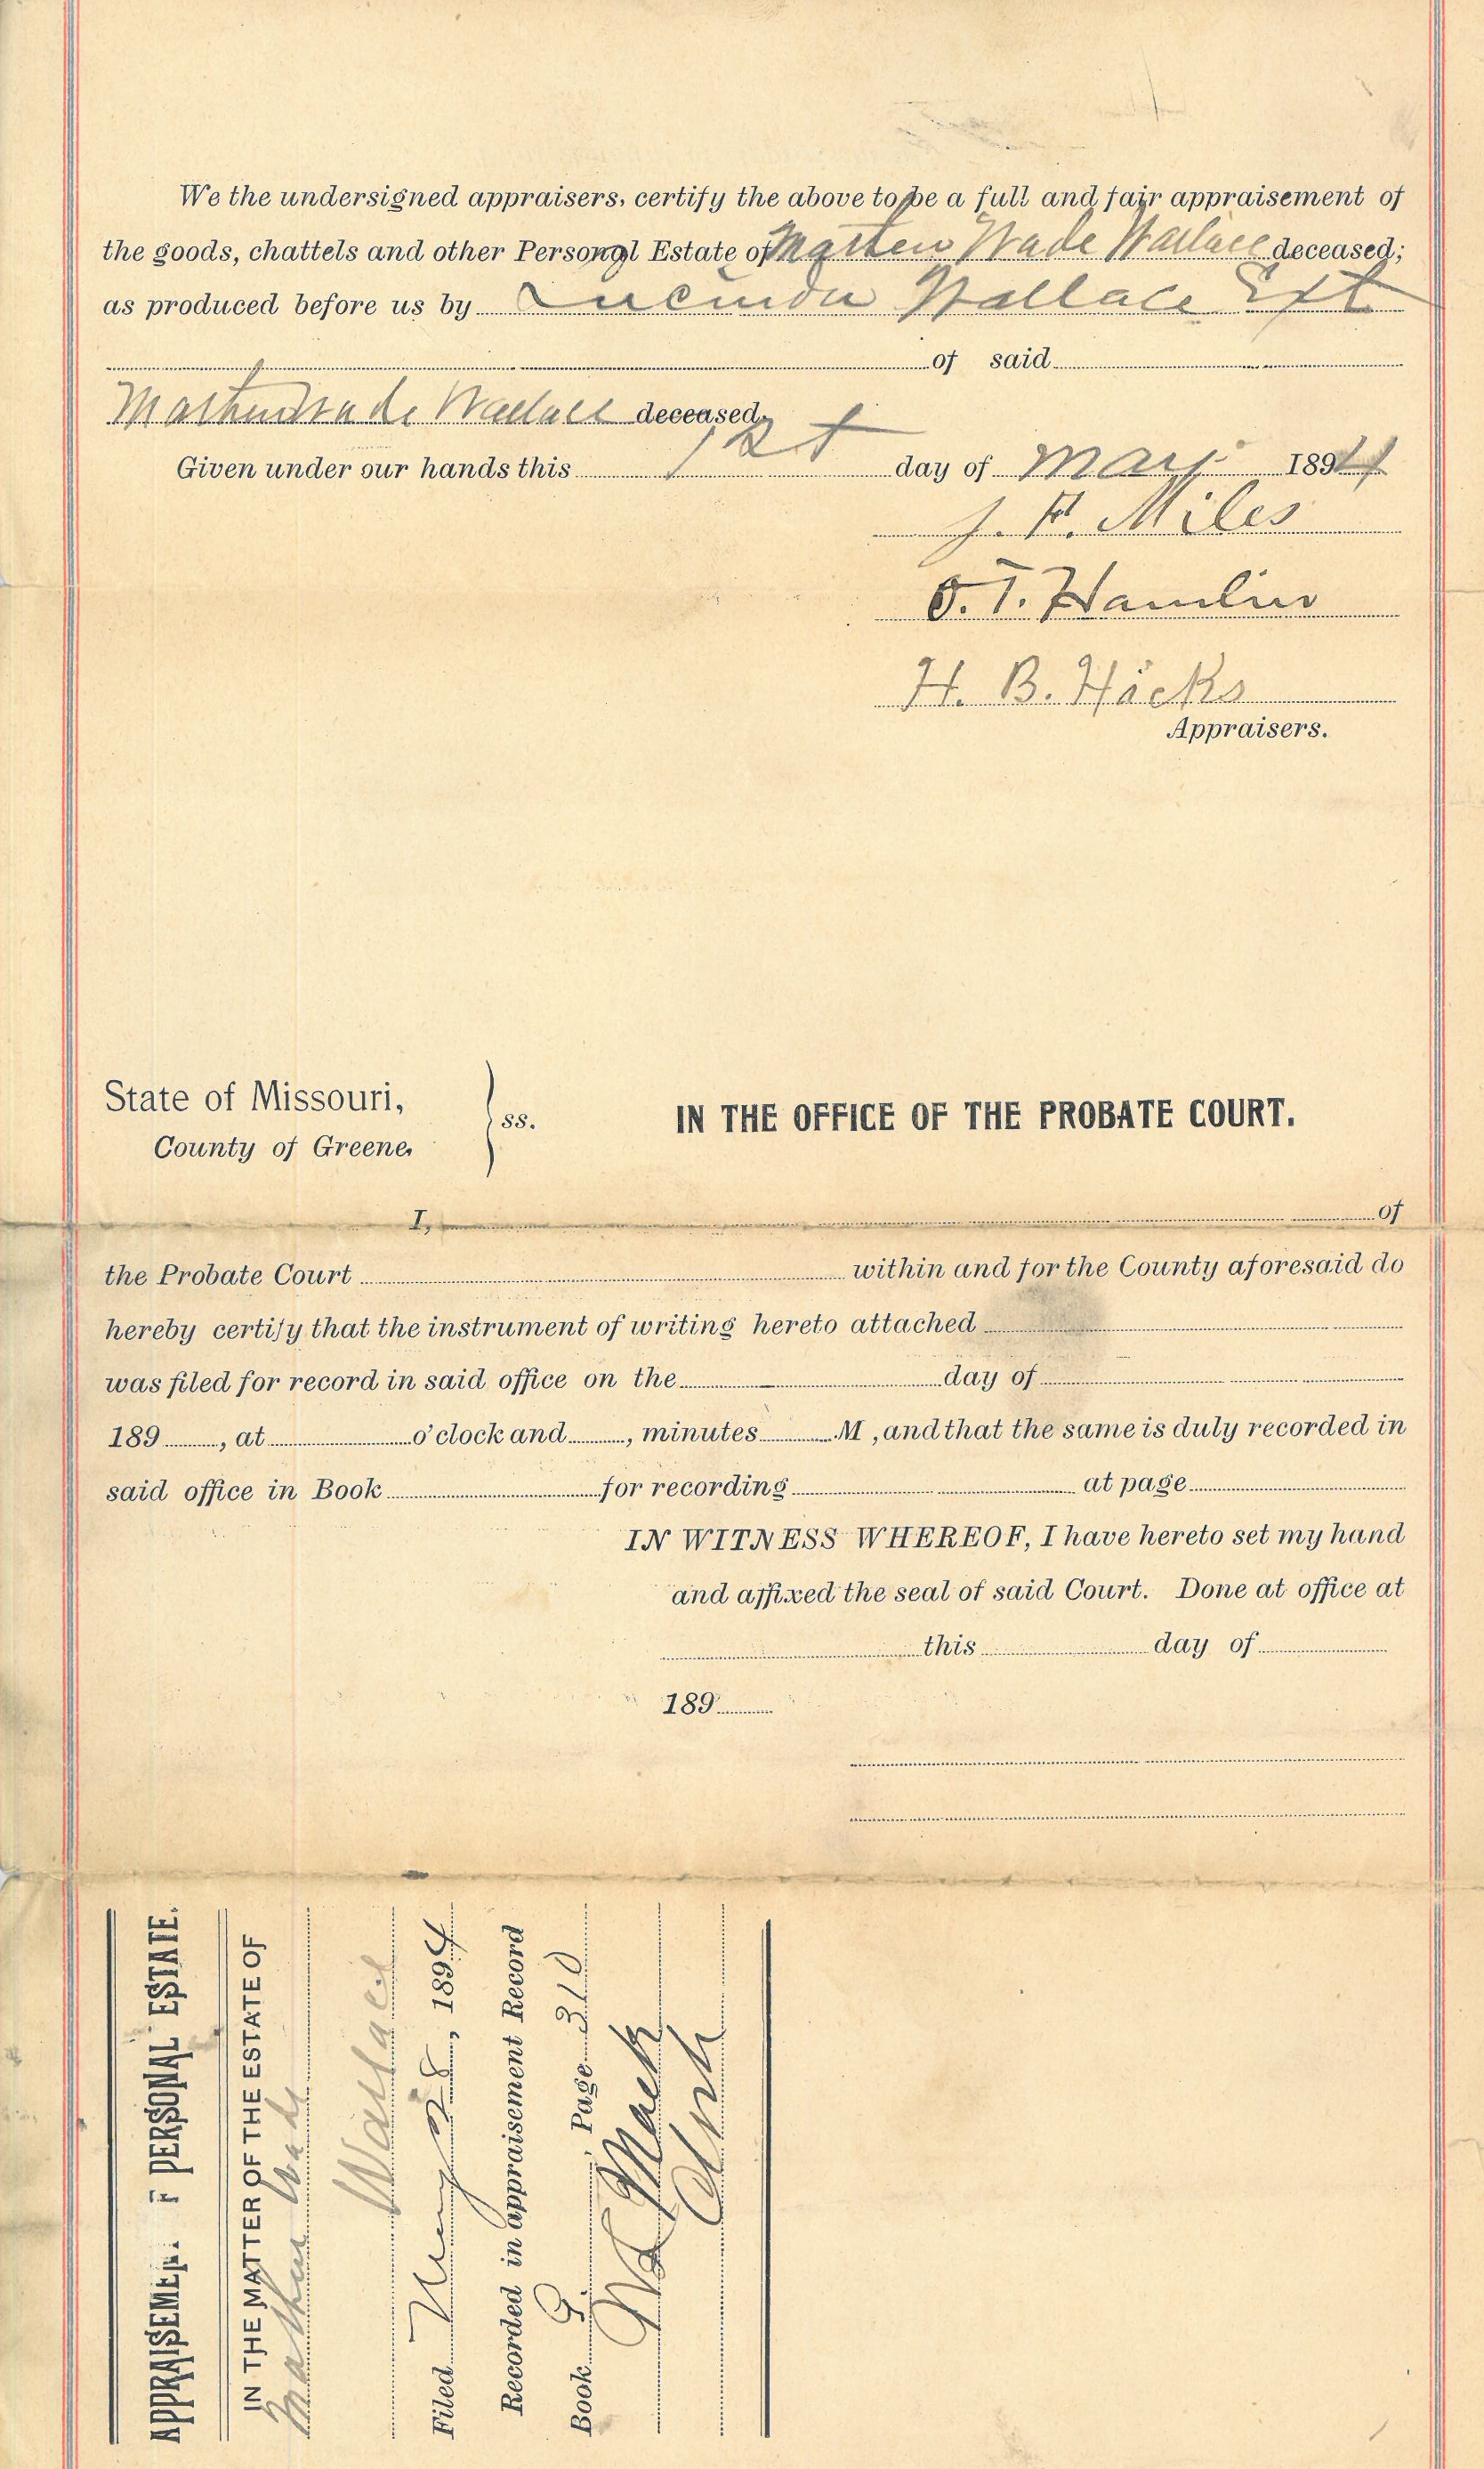 We the undersigned appraisers, certify the above to be a full and fair appraisement of
the goods, chattels and other Personal Estate of Mathew Wade Wallace deceased;
as produced before us by Lucinda Wallace Ext
of said
Mathew Wade Wallace deceased,
Given under our hands this 1st day of May 1894
J. F. Miles
O. T. Hamlin
H. B. Hicks
Appraisers.
State of Missouri,
County of Greene,
ss.
IN THE OFFICE OF THE PROBATE COURT.
I, of
the Probate Court within and for the County aforesaid do
hereby certify that the instrument of writing hereto attached
was filed for record in said office on the day of
189 , at o'clock and , minutes M , and that the same is duly recorded in
said office in Book for recording at page
IN WITNESS WHEREOF, I have hereto set my hand
and affixed the seal of said Court. Done at office at
this day of
189
APPRAISEMEN F PERSONAL ESTATE.
IN THE MATTER OF THE ESTATE OF
Mathew Wade
Wallace
Filed May 28, 1894
Recorded in appraisement Record
Book G, Page 310
Mack
Clerk